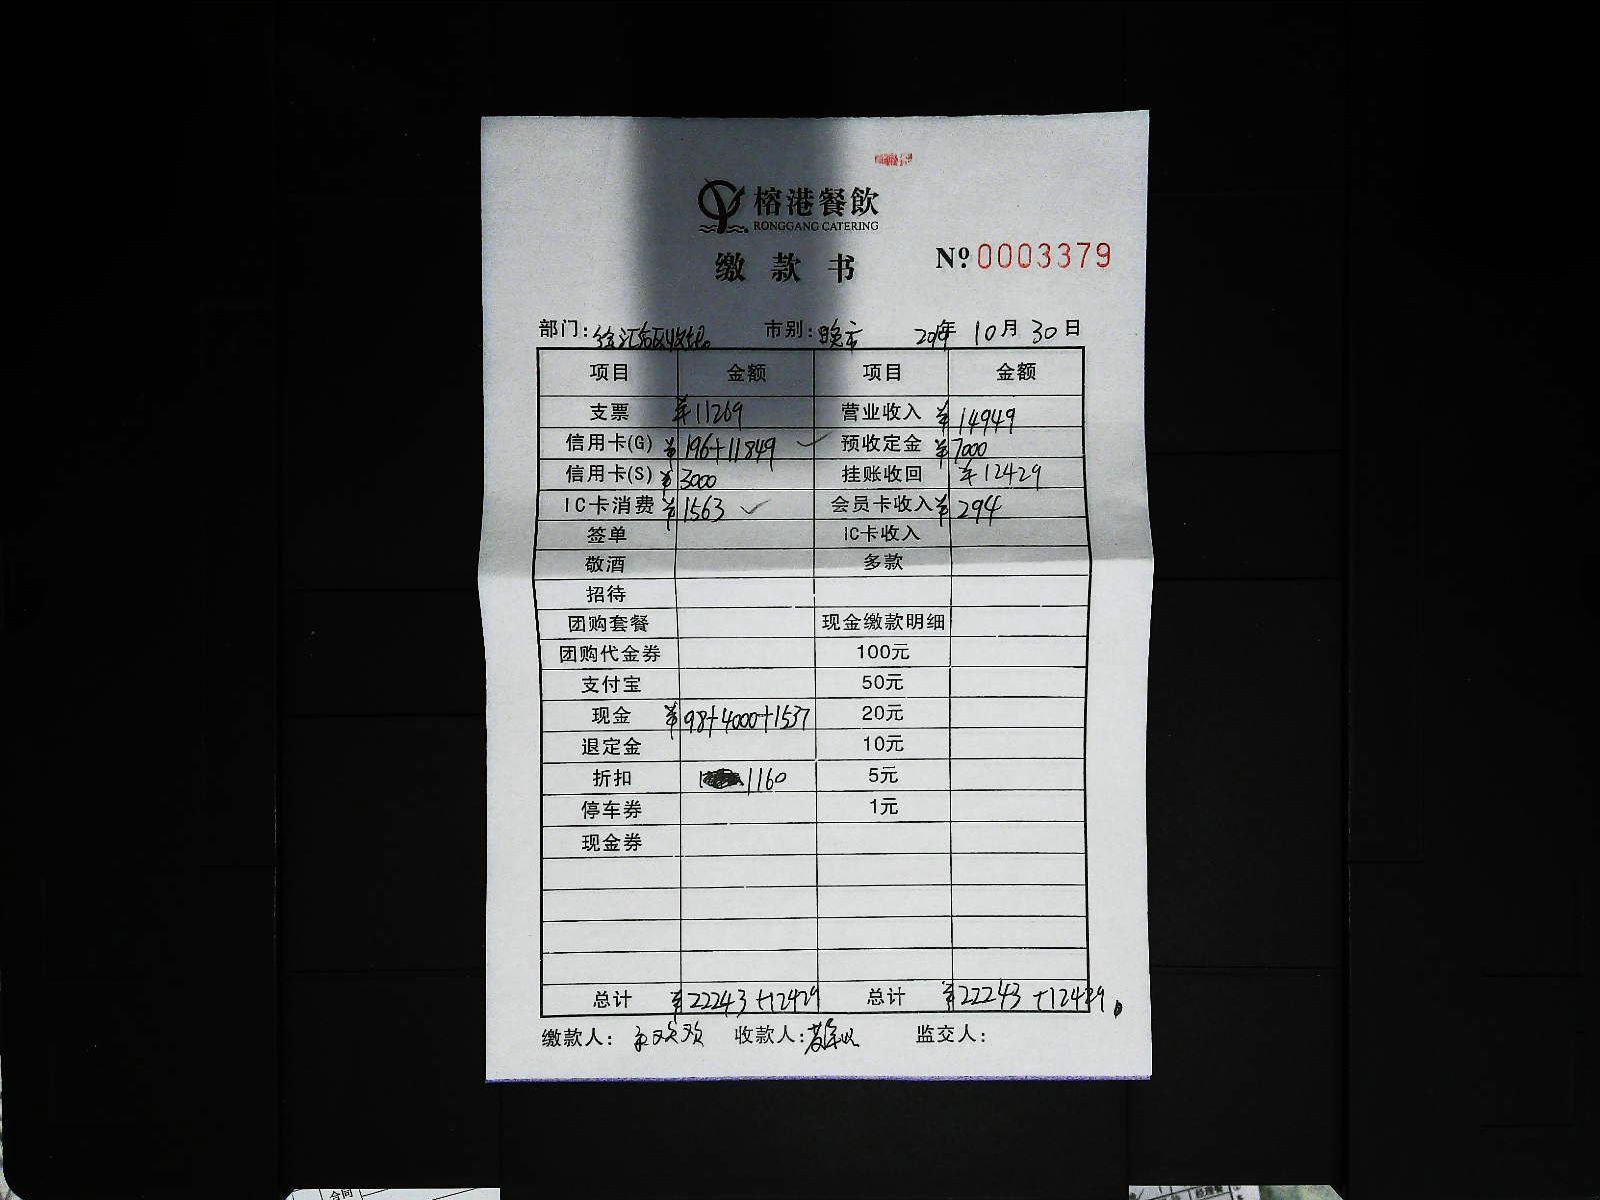 榕港餐飲
RONGGANG CATERING
缴款书
№ 0003379
部门: 市别: 晚市 年 10月 30日
项目 金额 项目 金额
支票 ¥11269 营业收入 ¥14949
信用卡(G) ¥196+11849 预收定金 ¥7000
信用卡(S) ¥3000 挂账收回 ¥12429
IC卡消费 ¥1563 会员卡收入 ¥294
签单 IC卡收入
敬酒 多款
招待
团购套餐 现金缴款明细
团购代金券 100元
支付宝 50元
现金 ¥98+4000+1537 20元
退定金 10元
折扣 1160 5元
停车券 1元
现金券
总计 ¥22243+12429 总计 ¥22243+12429
缴款人: 收款人: 监交人:
合同